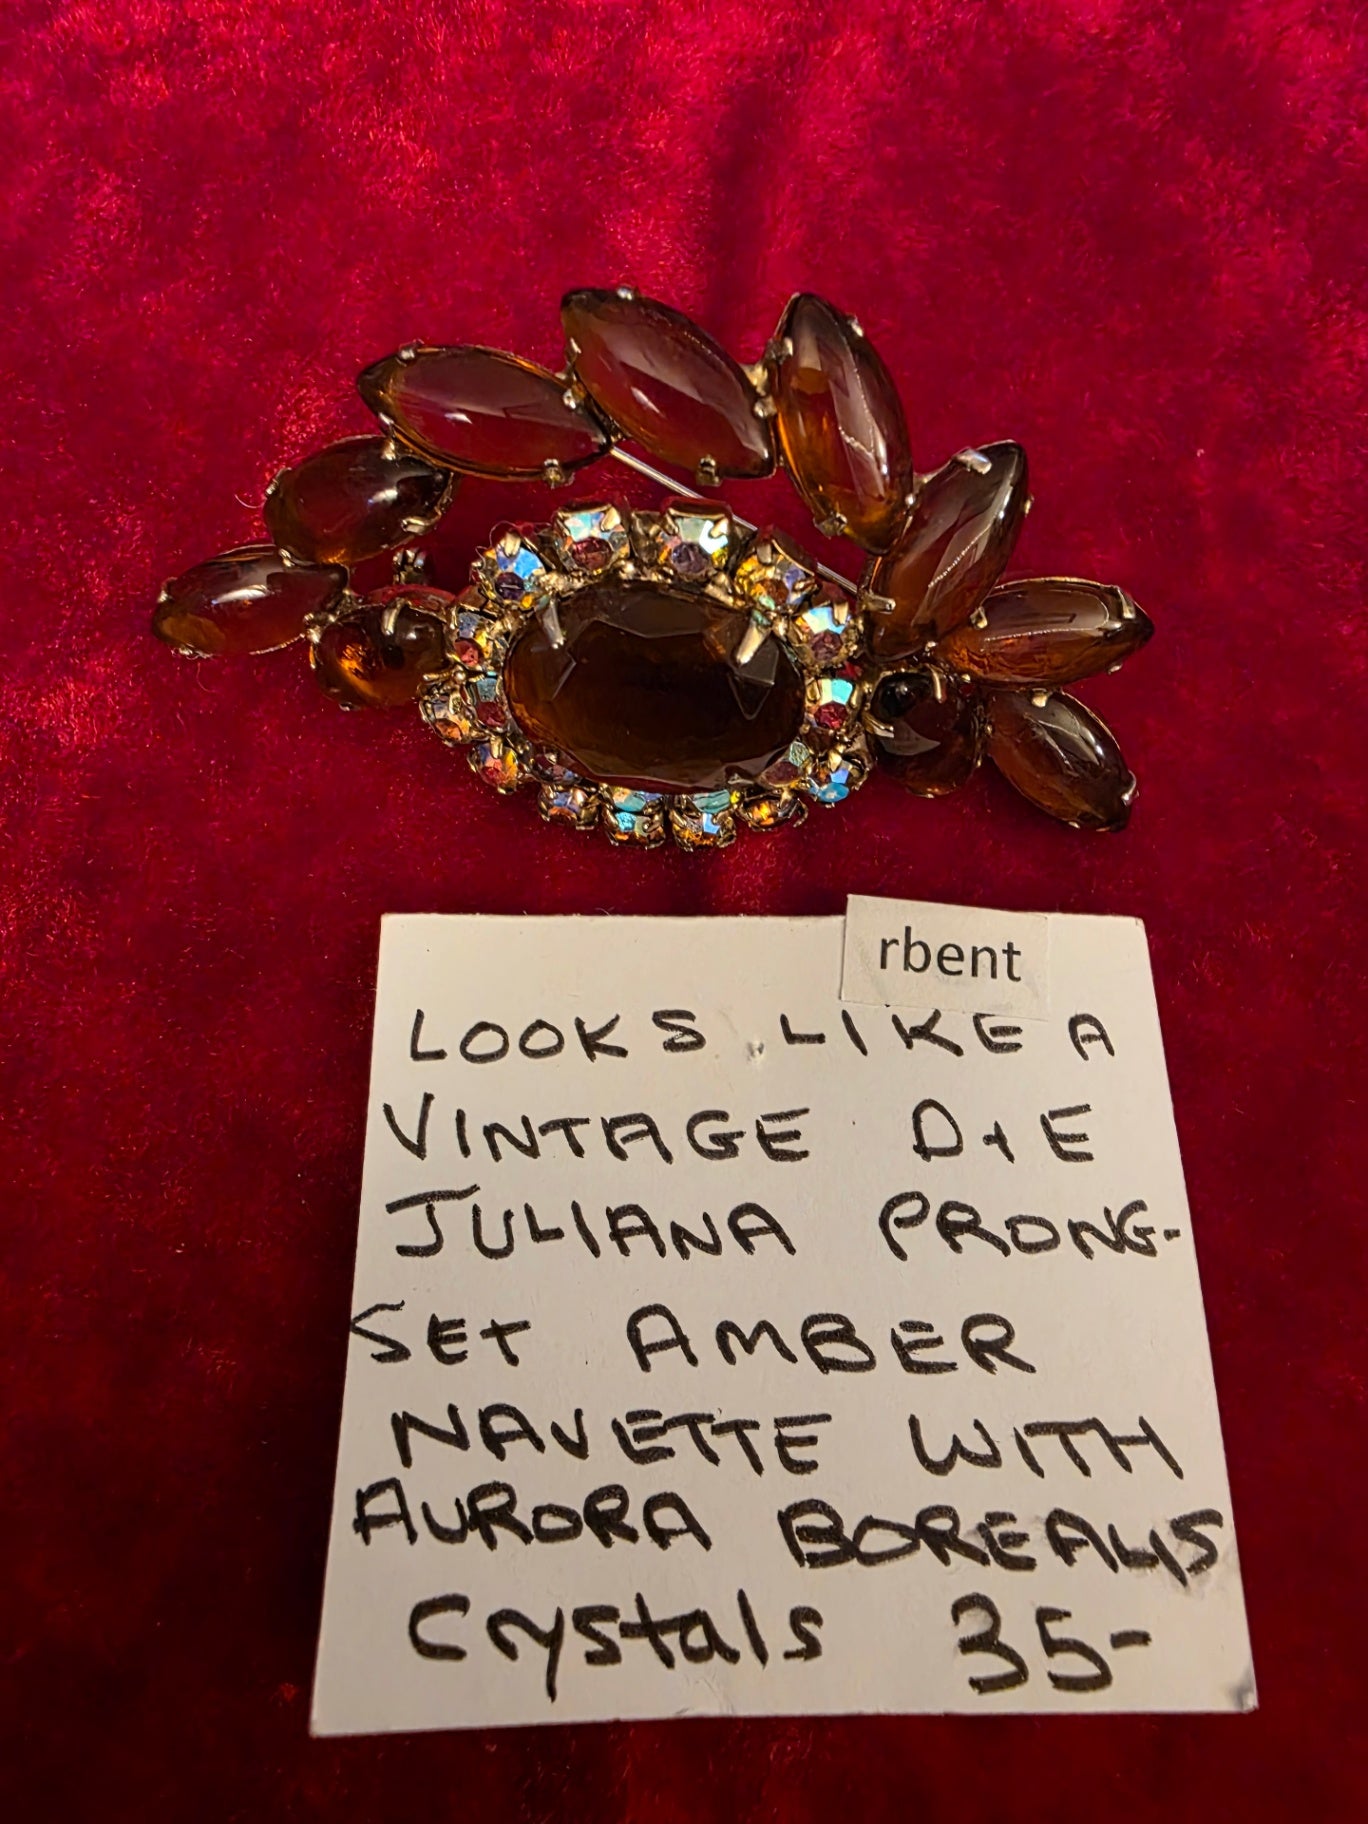 rbent
LOOKS LIKE A
VINTAGE D+E
JULIANA PRONG-
SET AMBER
NAVETTE WITH
AURORA BOREALIS
Crystals 35-